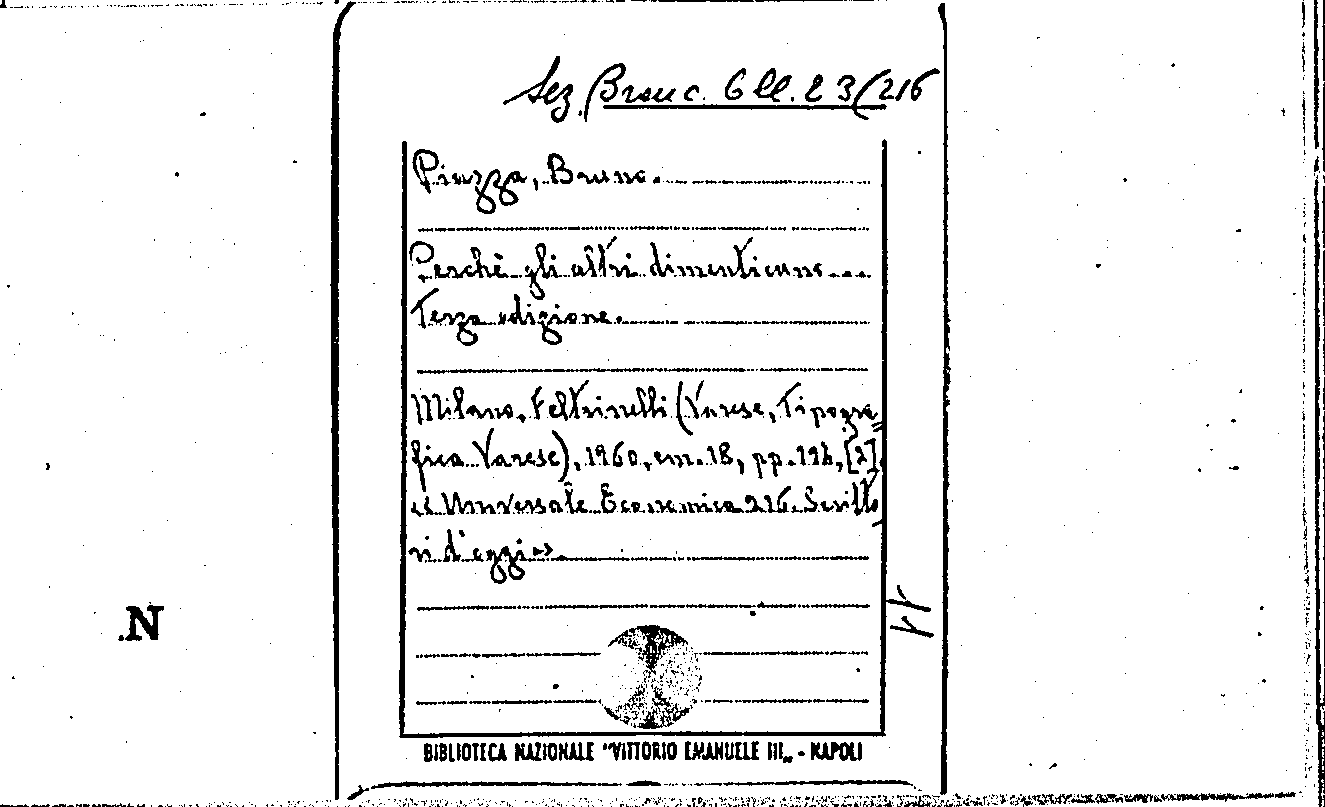 Sez. Branc. 6 ll. 23 (216
Piazza, Bruno.
Perchè gli altri dimenticano...
Terza edizione.
Milano, Feltrinelli (Varese, Tipogra=
fica Varese), 1960, cm. 18, pp. 196, [2]
« Universale Economica 216. Scritto
ri d'oggi ».
N
BIBLIOTECA NAZIONALE "VITTORIO EMANUELE III„ - NAPOLI